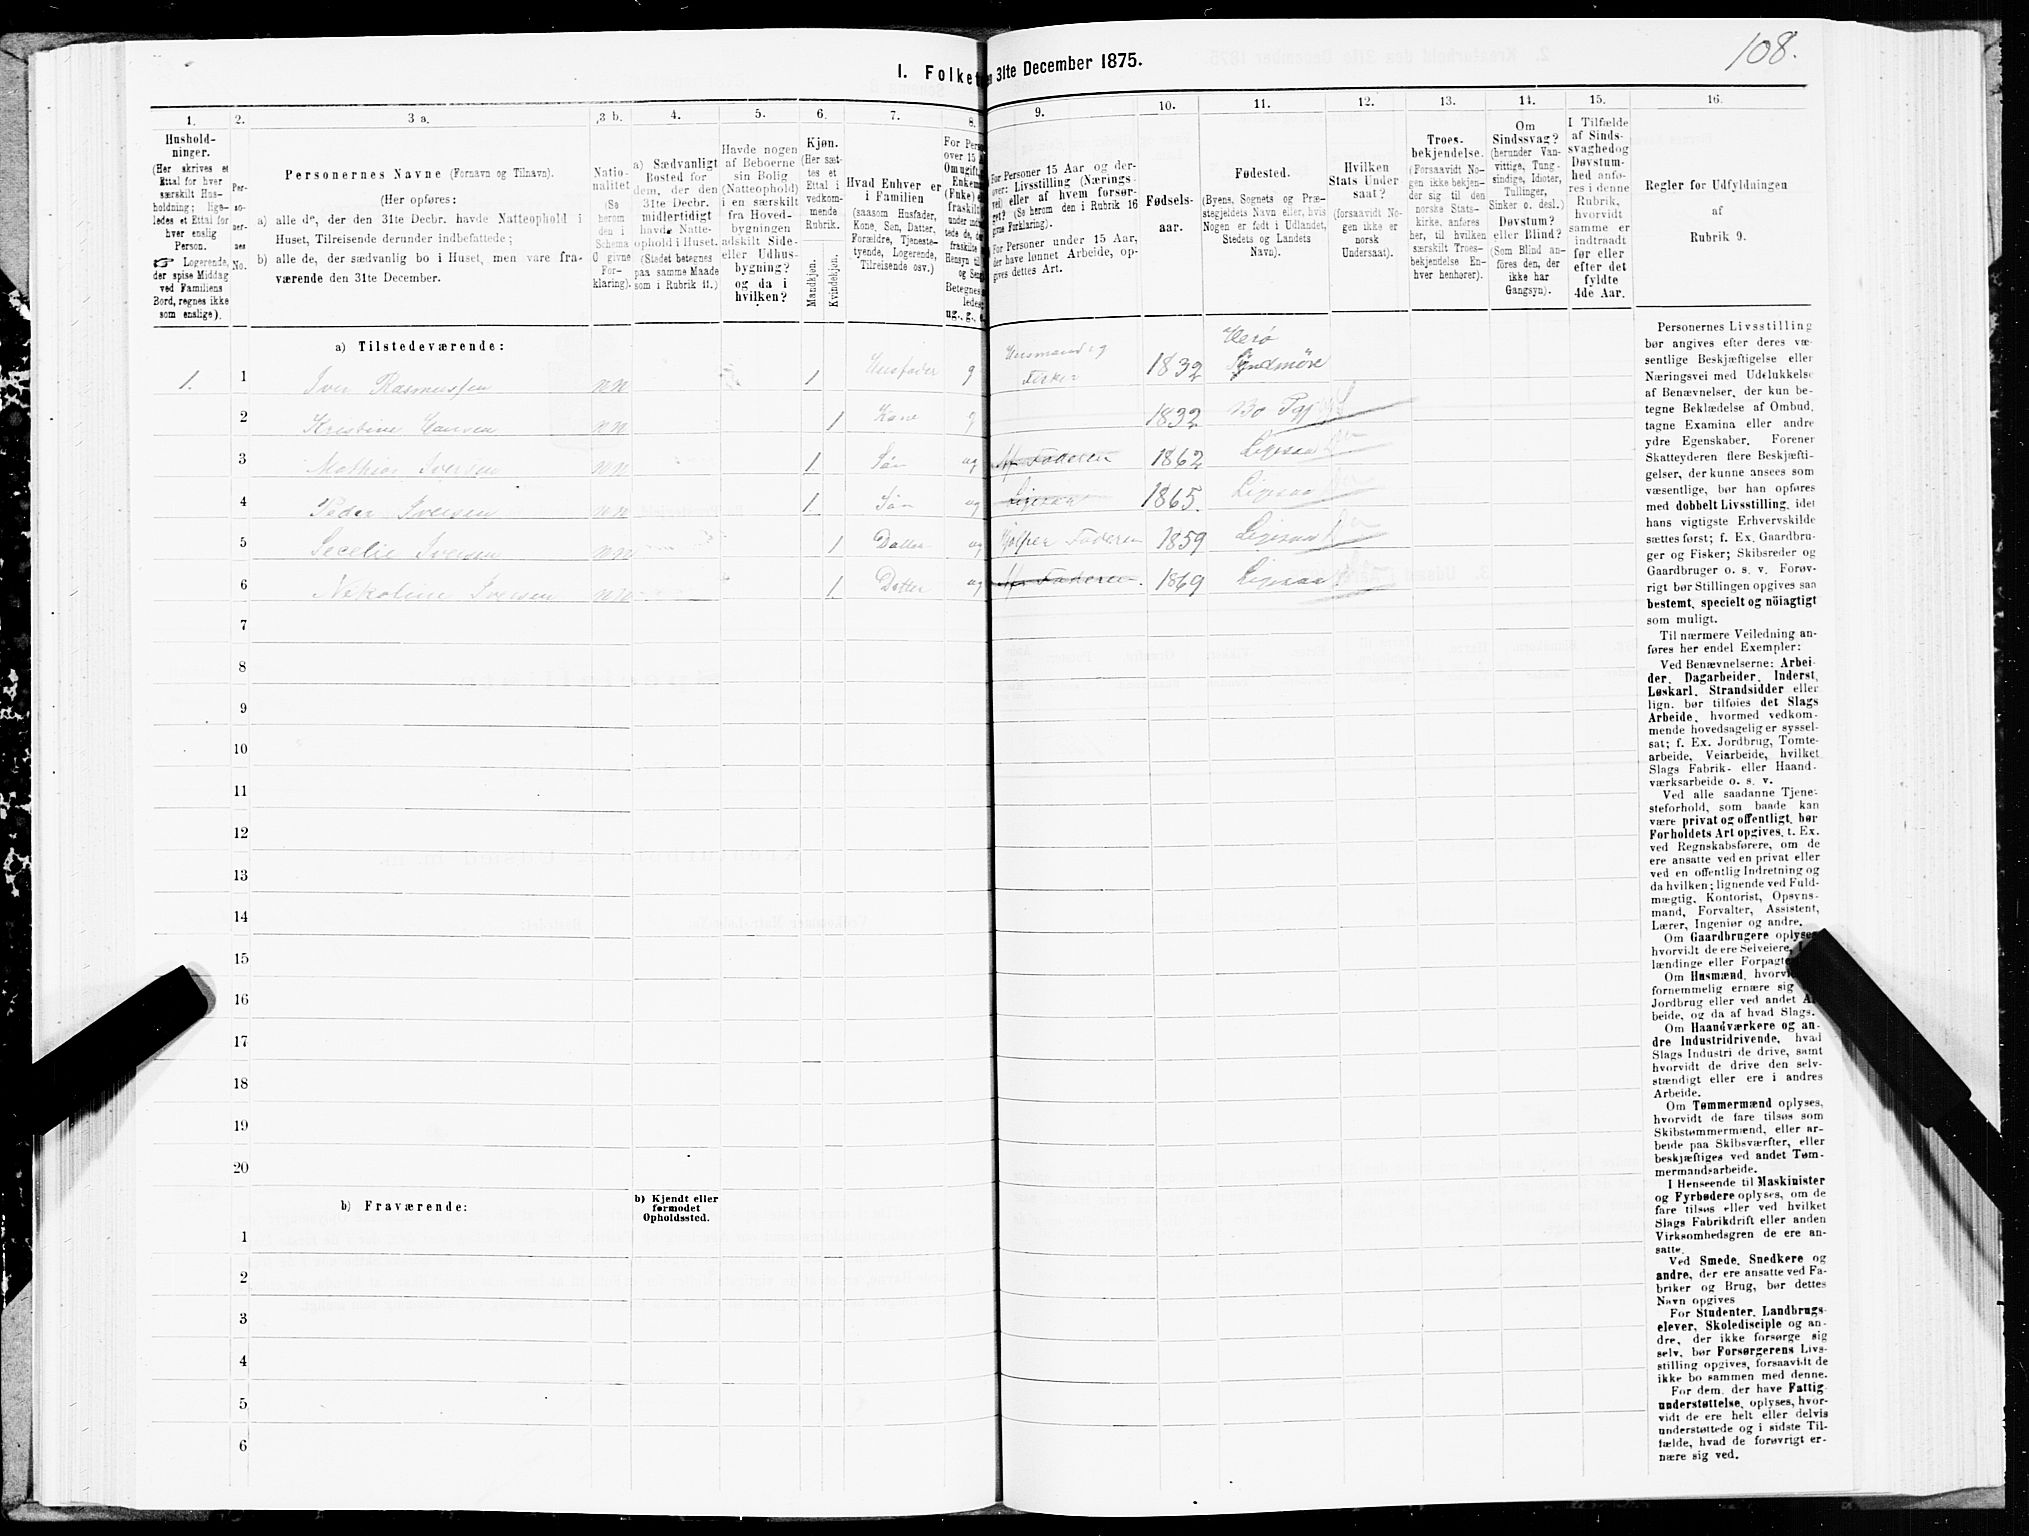 108.
I. Folket
31te December 1875.
1. 2. 3 a. 3 b. 4. 5. 6. 7. 8. 9. 10. 11. 12. 13. 14. 15. 16.
Hushold-
ninger.
(Her skrives et
Ettal for hver
særskilt Hus-
holdning; lige-
ledes et Ettal for
hver enslig
Person.
☞ Logerende,
der spise Middag
ved Familiens
Bord, regnes ikke
som enslige).
Per-
so-
ner-
nes
No.
Personernes Navne (Fornavn og Tilnavn).
(Her opføres:
a) alle de, der den 31te Decbr. havde Natteophold i
Huset, Tilreisende derunder indbefattede;
b) alle de, der sædvanlig bo i Huset, men vare fra-
værende den 31te December.
Natio-
nalitet
(Se
herom
den i
Schema
O givne
For-
klaring).
a) Sædvanligt
Bosted for
dem, der den
31te Decbr.
midlertidigt
havde Natte-
ophold i Huset.
(Stedet betegnes
paa samme Maade
som i Rubrik 11.)
Havde nogen
af Beboerne
sin Bolig
(Natteophold)
i en særskilt
fra Hoved-
bygningen
adskilt Side-
eller Udhus-
bygning?
og da i
hvilken?
Kjøn.
(Her sæt-
tes et
Ettal i
vedkom-
mende
Rubrik.
Mandkjøn.
Kvindekjøn.
Hvad Enhver er
i Familien
(saasom Husfader,
Kone, Søn, Datter,
Forældre, Tjeneste-
tyende, Logerende,
Tilreisende osv.)
For Pers
over 15 A
Om ugift,
Enkem
(Fnke) e
fraskilt
ug., g., e.
For Personer 15 Aar og der-
over: Livsstilling (Nærings-
vei) eller af hvem forsør-
get? (Se herom den i Rubrik 16
givne Forklaring).
For Personer under 15 Aar,
der have lønnet Arbeide, op-
gives dettes Art.
Fødsels-
aar.
Fødested.
(Byens, Sognets og Præ-
stegjeldets Navn eller, hvis
Nogen er født i Udlandet,
Stedets og Landets
Navn).
Hvilken
Stats Under-
saat?
(forsaavidt No-
gen ikke er
norsk
Undersaat).
Troes-
bekjendelse.
(Forsaavidt No-
gen ikke bekjen-
der sig til den
norske Stats-
kirke, anføres
her, til hvilken
særskilt Troes-
bekjendelse En-
hver henhører).
Om
Sindssvag?
(herunder Van-
vittige, Tung-
sindige, Idioter,
Tullinger,
Sinker o. desl.)
Døvstum?
eller Blind?
(Som Blind an-
føres den, der
ikke har
Gangsyn).
I Tilfælde
af Sinds-
svaghed og
Døvstum-
hed anfø-
res i denne
Rubrik,
hvorvidt
samme er
indtraadt
før eller
efter det
fyldte
4de Aar.
Regler for Udfyldningen
af
Rubrik 9.
a) Tilstedeværende:
1. 1 Iver Rasmussen nn 1 Husfader g Husmand og Fisker 1832 Herø Søndmøre
2 Kristine Hansen nn 1 Kone g 1832
3 Mathias Iversen nn 1 Søn ug Faderen 1862 Ligesaa
4 Peder Iversen nn 1 Søn ug Ligesaa 1865. Ligesaa
5 Secelie Iversen nn 1 Datter ug Hjelper Faderen 1859 Ligesaa
6 Nikoline Iversen nn 1 Datter ug Faderen. 1869 Ligesaa
7
8
9
10
11
12
13
14
15
16
17
18
19
20
b) Fraværende:
b) Kjendt eller
formodet
Opholdssted.
1
2
3
4
5
6
Personernes Livsstilling
bør angives efter deres væ-
sentlige Beskjæftigelse eller
Næringsvei med Udelukkelse
af Benævnelser, der kun be-
tegne Beklædelse af Ombud,
tagne Examina eller andre
ydre Egenskaber. Forener
Skatteyderen flere Beskjæfti-
gelser, der kunne ansees som
væsentlige, bør han opføres
med dobbelt Livsstilling, idet
hans vigtigste Erhvervskilde
sættes først; f. Ex. Gaardbru-
ger og Fisker; Skibsreder og
Gaardbruger o. s. v. Forøv-
rigt bør Stillingen opgives saa
bestemt, specielt og nöiagtigt
som muligt.
Til nærmere Veiledning an-
føres her endel Exempler:
Ved Benævnelserne: Arbei-
der, Dagarbeider, Inderst,
Løskarl, Strandsidder eller
lign. bør tilføies det Slags
Arbeide, hvormed vedkom-
mende hovedsagelig er syssel-
sat; f. Ex. Jordbrug, Tomte-
arbeide, Veiarbeide, hvilket
Slags Fabrik- eller Haand-
værksarbeide o. s. v.
Ved alle saadanne Tjene-
steforhold, som baade kan
være privat og offentligt, bør
Forholdets Art opgives, t. Ex.
ved Regnskabsførere, om de
ere ansatte ved en privat eller
ved en offentlig Indretning og
da hvilken; lignende ved Fuld-
mægtig, Kontorist, Opsyns-
mand, Forvalter, Assistent,
Lærer, Ingeniør og andre.
Om Gaardbrugere oplyses,
hvorvidt de ere Selveiere,
lændinge eller Forpagte
Om Husmænd, hvorvi
fornemmelig ernære sig
Jordbrug eller ved andet Ar-
beide, og da af hvad Slags.
Om Haandværkere og an-
dre Industridrivende, hvad
Slags Industri de drive, samt
hvorvidt de drive den selv-
stændigt eller ere i andres
Arbeide.
Om Tømmermænd oplyses,
hvorvidt de fare tilsøs som
Skibstømmermænd, eller ar-
beide paa Skibsværfter, eller
beskjæftiges ved andet Tøm-
mermandsarbeide.
I Henseende til Maskinister
og Fyrbødere oplyses, om de
fare tilsøs eller ved hvilket
Slags Fabrikdrift eller anden
Virksomhedsgren de ere an-
satte.
Ved Smede, Snedkere og
andre, der ere ansatte ved Fa-
briker og Brug, bør dettes
Navn opgives
For Studenter, Landbrugs-
elever, Skoledisciple og an-
dre, der ikke forsørge sig
selv, bør Forsørgerens Livs-
stilling opgives, forsaavidt de
ikke bo sammen med denne.
For dem, der have Fattig-
understøttelse, oplyses, hvor-
vidt de ere helt eller delvis
understøttede og i sidste Til-
fælde, hvad de forøvrigt er-
nære sig ved.